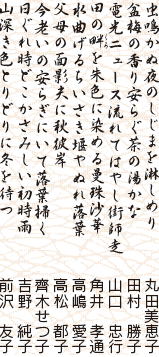 虫鳴かぬ夜のしじまを淋しめり 丸田美恵子
盆梅の香り安らぐ茶の湯かな 田村 勝子
電光ニュース流れてはやし街師走 山口 忠行
田の畔を朱色に染める曼珠沙華 角井 孝通
水曲げるちいさき堰やぬれ落葉 高嶋 愛子
父母の面影夫に秋彼岸 高松 都子
今老いの安らぎにいて落葉掃く 齊木せつ子
日ぐれ時どこかさみしい初時雨 吉野 純子
山深き色とりどりに冬を待つ 前沢 友子